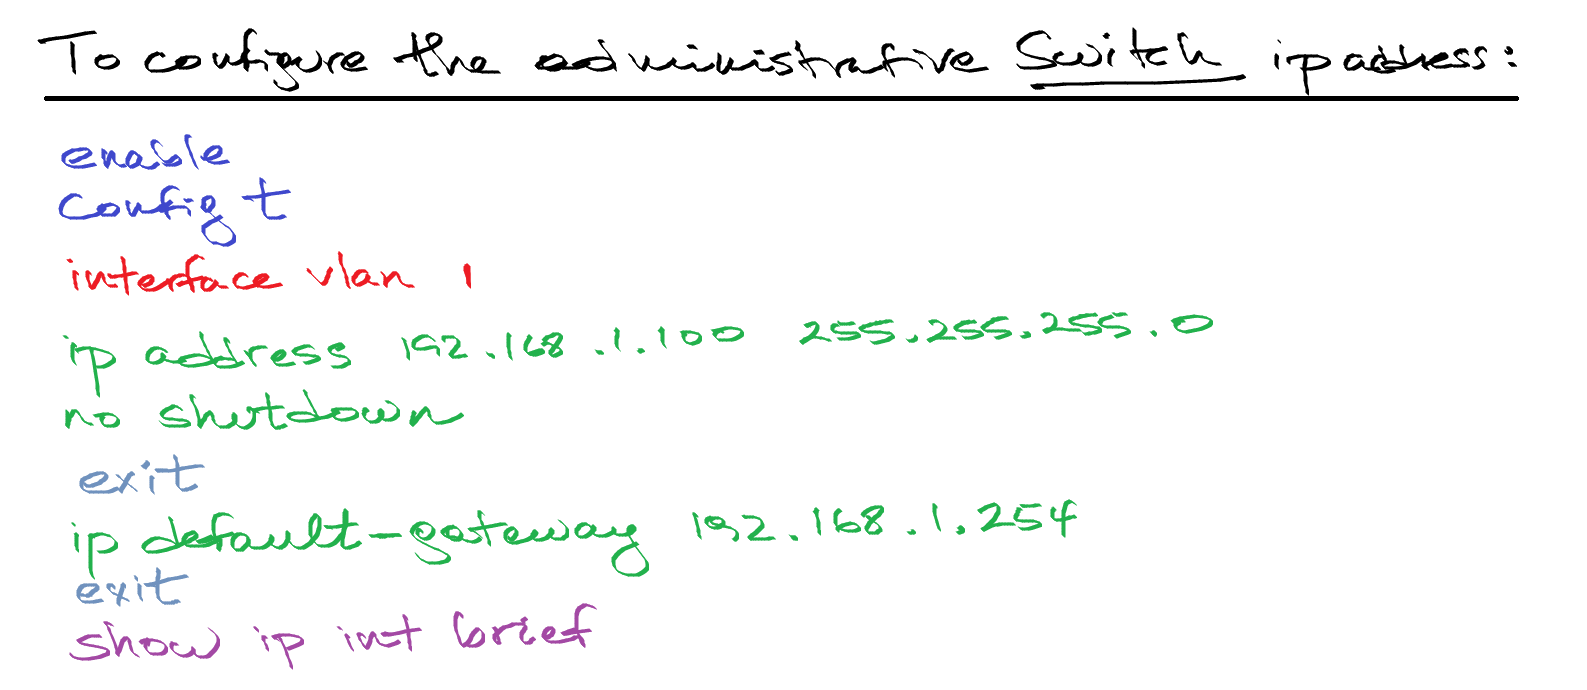 To configure the administrative Switch ip address:
enable
config t
interface vlan 1
ip address 192.168.1.100 255.255.255.0
no shutdown
exit
ip default-gateway 192.168.1.254
exit
show ip int brief